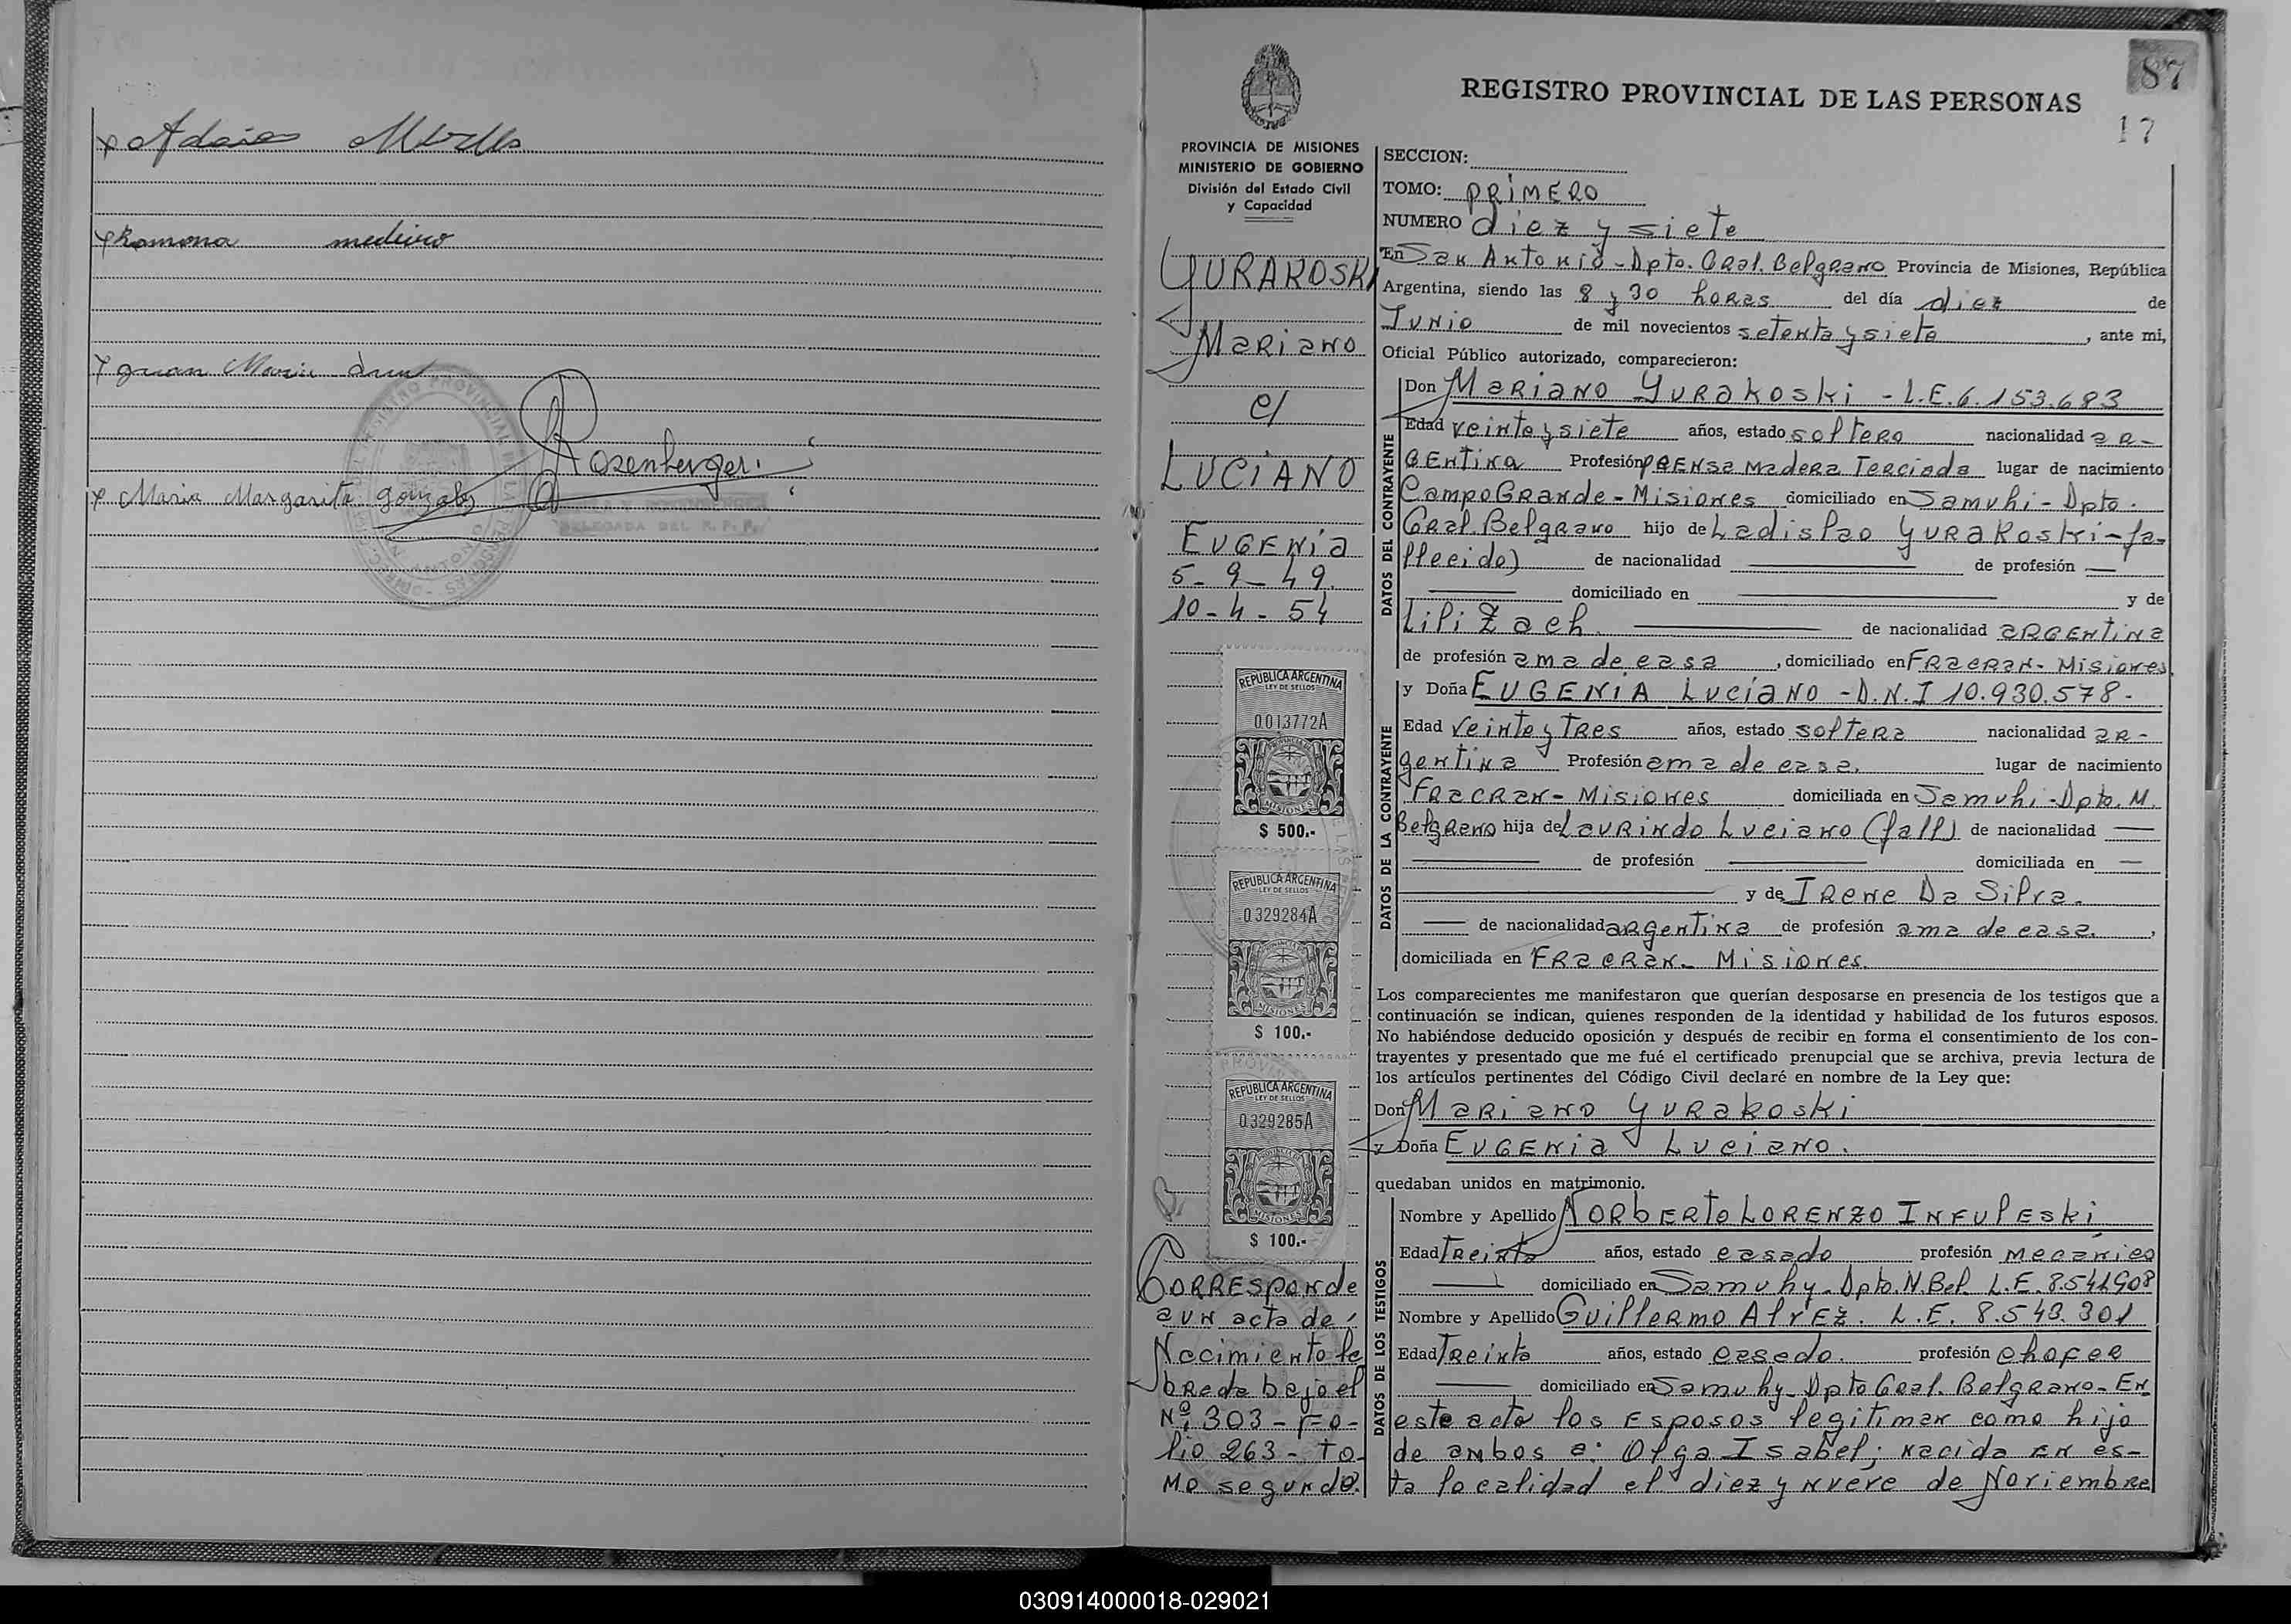 Ramona medeiro
Juan Maria
Rosenberger
x Maria Margarita gonzalez
DELEGADA DEL R. P. P.
87
REGISTRO PROVINCIAL DE LAS PERSONAS
17
PROVINCIA DE MISIONES
MINISTERIO DE GOBIERNO
División del Estado Civil
y Capacidad
YURAKOSKI
Mariano
c/
LUCIANO
EUGENia
5-9-49.
10-4-54
REPUBLICA ARGENTINA
LEY DE SELLOS
0013772A
MISIONES
$ 500.-
REPUBLICA ARGENTINA
LEY DE SELLOS
0329284A
MISIONES
$ 100.-
REPUBLICA ARGENTINA
LEY DE SELLOS
0329285A
MISIONES
$ 100.-
CORRESponde
a un acta de
Nacimiento la
brada bajo el
Nº 303 - Fo-
lio 263 - to-
mo segundo.
SECCION:
TOMO: PRIMERO
NUMERO diez y siete
En San Antonio - Dpto. Gral. Belgrano Provincia de Misiones, República
Argentina, siendo las 8 y 30 horas del día diez de
Junio de mil novecientos setenta y siete, ante mi,
Oficial Público autorizado, comparecieron:
DATOS DEL CONTRAYENTE
Don Mariano Yurakoski - L.E. 6.153.683
Edad veinte y siete años, estado soltero nacionalidad ar-
gentina Profesión prensa madera Terciada lugar de nacimiento
Campo Grande - Misiones domiciliado en Samuhi - Dpto.
Gral. Belgrano hijo de Ladislao Yurakoski - fa-
llecido) de nacionalidad — de profesión —
— domiciliado en — y de
Lili Zach — de nacionalidad argentina
de profesión ama de casa, domiciliado en FRacRan - Misiones
DATOS DE LA CONTRAYENTE
y Doña EUGENIA Luciano - D.N.I 10.930.578.-
Edad veinte y Tres años, estado soltera nacionalidad ar-
gentina Profesión ama de casa. lugar de nacimiento
FRacRan - Misiones domiciliada en Samuhi - Dpto. M.
Belgrano hija de Laurindo Luciano (fall) de nacionalidad —
— de profesión — domiciliada en —
— y de Irene Da Silva.
— de nacionalidad argentina de profesión ama de casa.,
domiciliada en FRacRan - Misiones.
Los comparecientes me manifestaron que querían desposarse en presencia de los testigos que a
continuación se indican, quienes responden de la identidad y habilidad de los futuros esposos.
No habiéndose deducido oposición y después de recibir en forma el consentimiento de los con-
trayentes y presentado que me fué el certificado prenupcial que se archiva, previa lectura de
los artículos pertinentes del Código Civil declaré en nombre de la Ley que:
Don Mariano Yurakoski
y Doña EUGENia Luciano.
quedaban unidos en matrimonio.
DATOS DE LOS TESTIGOS
Nombre y Apellido NORbERTo LORENZO INFULESki
Edad Treinta años, estado casado profesión mecánico
— domiciliado en Samuhy - Dpto. N. Bel. L.E. 8.541.908
Nombre y Apellido Guillermo AlvEz. L.E. 8.543.301
Edad Treinta años, estado casado. profesión chofer
— domiciliado en Samuhy - Dpto Gral. Belgrano - En
este acto los Esposos legitiman como hijo
de ambos a: Olga Isabel; nacida en es-
ta localidad el diez y nueve de Noviembre
030914000018-029021